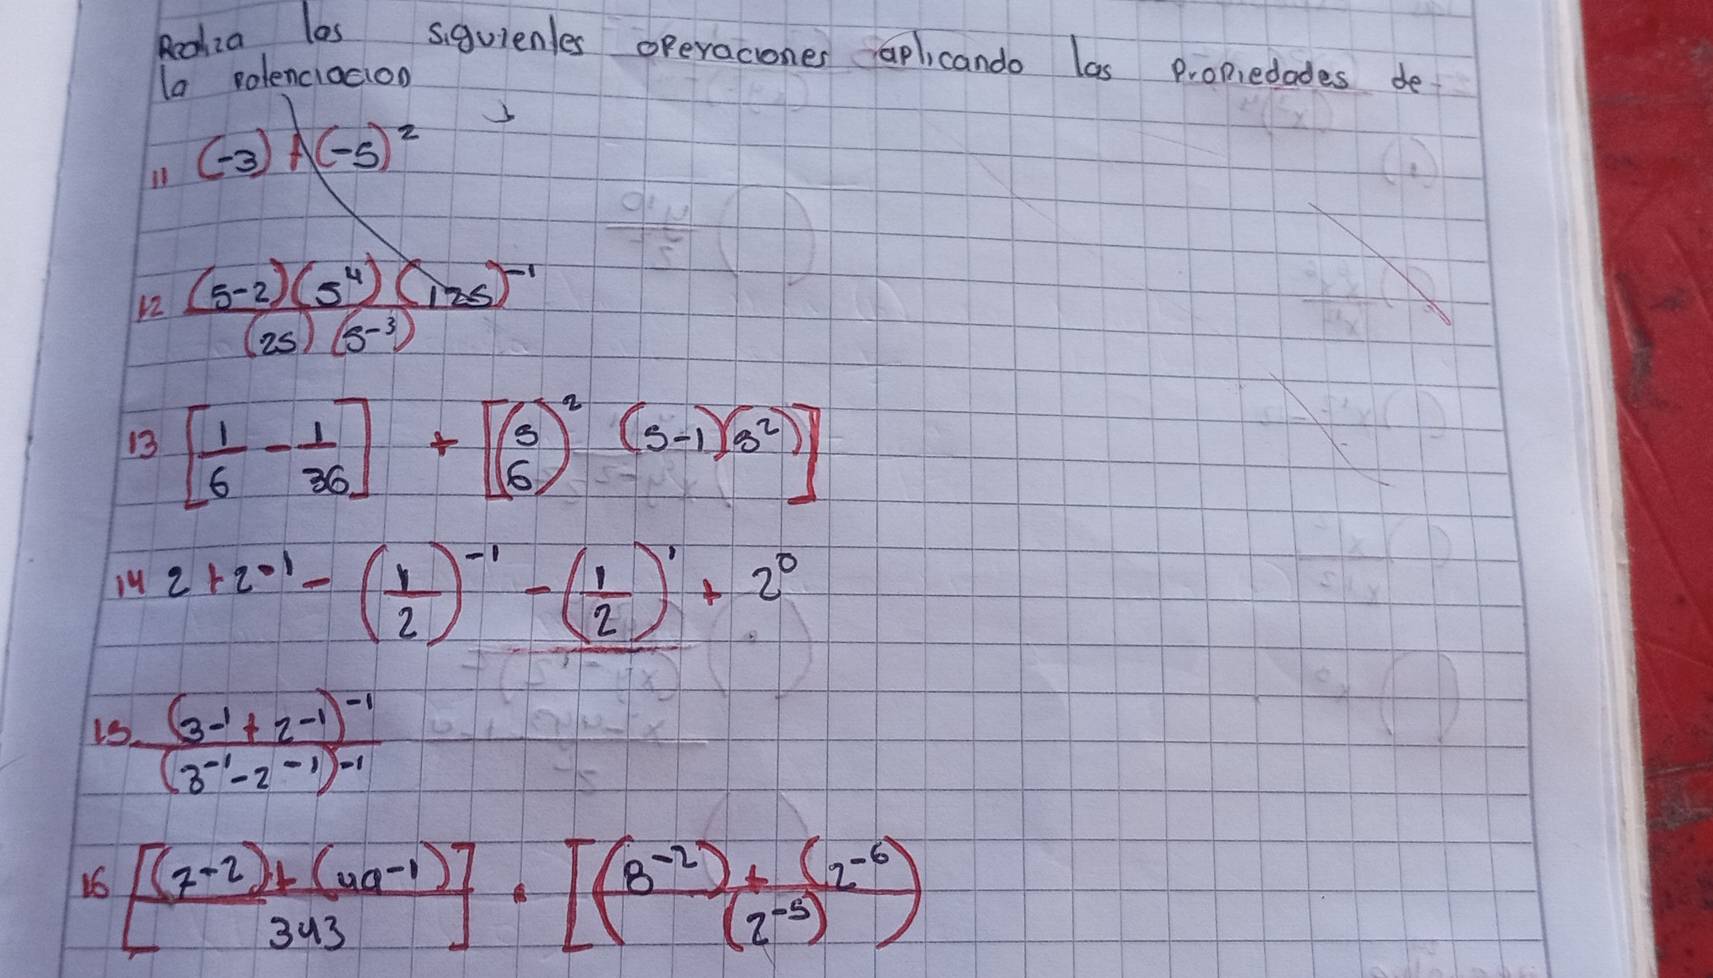 Realiza las siguientes operaciones aplicando las propiedades de
la potenciacion
11 (-3) + (-5)²
12 (5-2)(5⁴)(125)⁻¹ / (25)(5⁻³)
13 [1/6 - 1/36] + [(5/6)² (5-1)(5²)]
14 2+2⁻¹ - (1/2)⁻¹ - (1/2)¹ + 2⁰
15. (3⁻¹ + 2⁻¹)⁻¹ / (3⁻¹ - 2⁻¹)⁻¹
16 [(7⁻²) + (49⁻¹) / 343] · [(8⁻²) + (2⁻⁶) / (2⁻⁵)